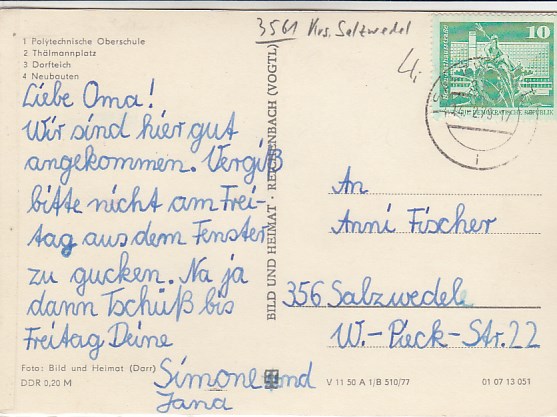 3561 Krs. Salzwedel
1 Polytechnische Oberschule
2 Thälmannplatz
3 Dorfteich
4 Neubauten
10
Liebe Oma!
Wir sind hier gut
angekommen. Vergiß
bitte nicht am Frei-
tag aus dem Fenster
zu gucken. Na ja
dann Tschüß bis
Freitag Deine
Simone und
Jana
BILD UND HEIMAT · REICHENBACH (VOGTL)
An
Anni Fischer
356 Salzwedel
W.-Pieck-Str. 22
Foto: Bild und Heimat (Darr)
DDR 0,20 M
V 11 50 A 1/B 510/77
01 07 13 051